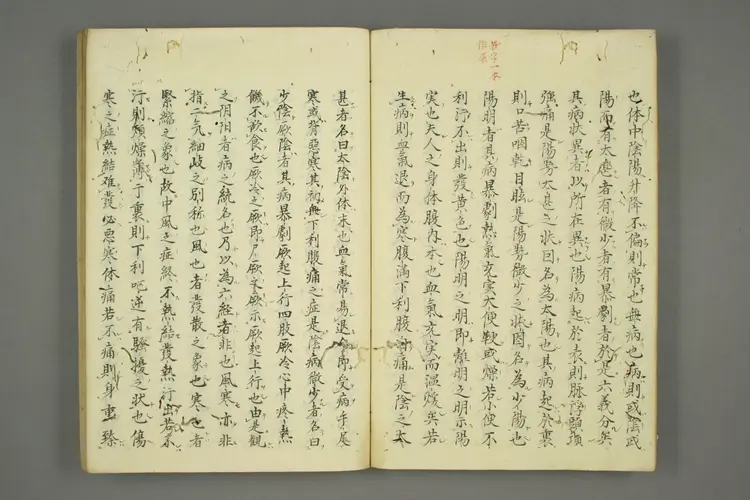 也体中陰陽升降不偏則常也無病也病則或陰或
陽而有太盛者有微少者有暴劇者於是六義分矣
其病状異者以所在異也陽病起於表則脉浮頭項
強痛是陽勢太甚之状因名為太陽也其病起於裏
則口苦咽乾目眩是陽勢微少之状因名為少陽也
陽明者其病暴劇熱氣充実大便鞕或燥若小便不
利汗不出則發黄色也陽明之明即離明之明示陽
実也夫人之身体腹内本也血氣充実而温煖矣若
生病則血氣退而為寒腹満下利腹痛是陰之太
甚者名曰太陰外体末也血氣常易退即受病手足
寒或背惡寒其初無下利腹痛之症是陰病微少者名曰
少陰厥陰者其病暴劇厥起上行四肢厥冷心中疼熱
飢不欲食也厥冷之厥即尸厥之厥示厥起上行也由是観
之陰陽者病之統名也乃以為六経者非也風寒亦非
指二気細岐之別称也風也者發散之象也寒也者
緊縮之象也故中風之症終不熱結發熱汗出若不
汗則煩燥薄于裏則下利呕逆有騒擾之状也傷
寒之症熱結难發必惡寒体痛若不痛則身重 臻